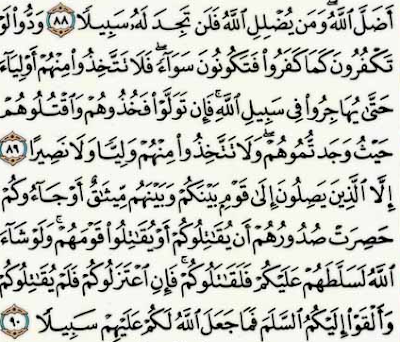 أَضَلَّ ٱللَّهُ ۖ وَمَن يُضۡلِلِ ٱللَّهُ فَلَن تَجِدَ لَهُۥ سَبِيلٗا ٨٨ وَدُّواْ لَوۡ
تَكۡفُرُونَ كَمَا كَفَرُواْ فَتَكُونُونَ سَوَآءٗۖ فَلَا تَتَّخِذُواْ مِنۡهُمۡ أَوۡلِيَآءَ
حَتَّىٰ يُهَاجِرُواْ فِي سَبِيلِ ٱللَّهِۚ فَإِن تَوَلَّوۡاْ فَخُذُوهُمۡ وَٱقۡتُلُوهُمۡ
حَيۡثُ وَجَدتُّمُوهُمۡۖ وَلَا تَتَّخِذُواْ مِنۡهُمۡ وَلِيّٗا وَلَا نَصِيرًا ٨٩
إِلَّا ٱلَّذِينَ يَصِلُونَ إِلَىٰ قَوۡمِۭ بَيۡنَكُمۡ وَبَيۡنَهُم مِّيثَٰقٌ أَوۡ جَآءُوكُمۡ
حَصِرَتۡ صُدُورُهُمۡ أَن يُقَٰتِلُوكُمۡ أَوۡ يُقَٰتِلُواْ قَوۡمَهُمۡۚ وَلَوۡ شَآءَ
ٱللَّهُ لَسَلَّطَهُمۡ عَلَيۡكُمۡ فَلَقَٰتَلُوكُمۡۚ فَإِنِ ٱعۡتَزَلُوكُمۡ فَلَمۡ يُقَٰتِلُوكُمۡ
وَأَلۡقَوۡاْ إِلَيۡكُمُ ٱلسَّلَمَ فَمَا جَعَلَ ٱللَّهُ لَكُمۡ عَلَيۡهِمۡ سَبِيلٗا ٩٠